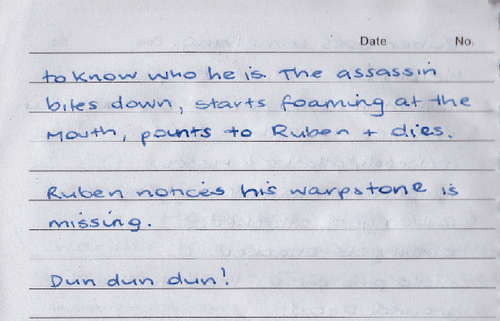 Date No.
to know who he is. The assassin
bites down, starts foaming at the
mouth, points to Ruben + dies.
Ruben notices his warpstone is
missing.
Dun dun dun!